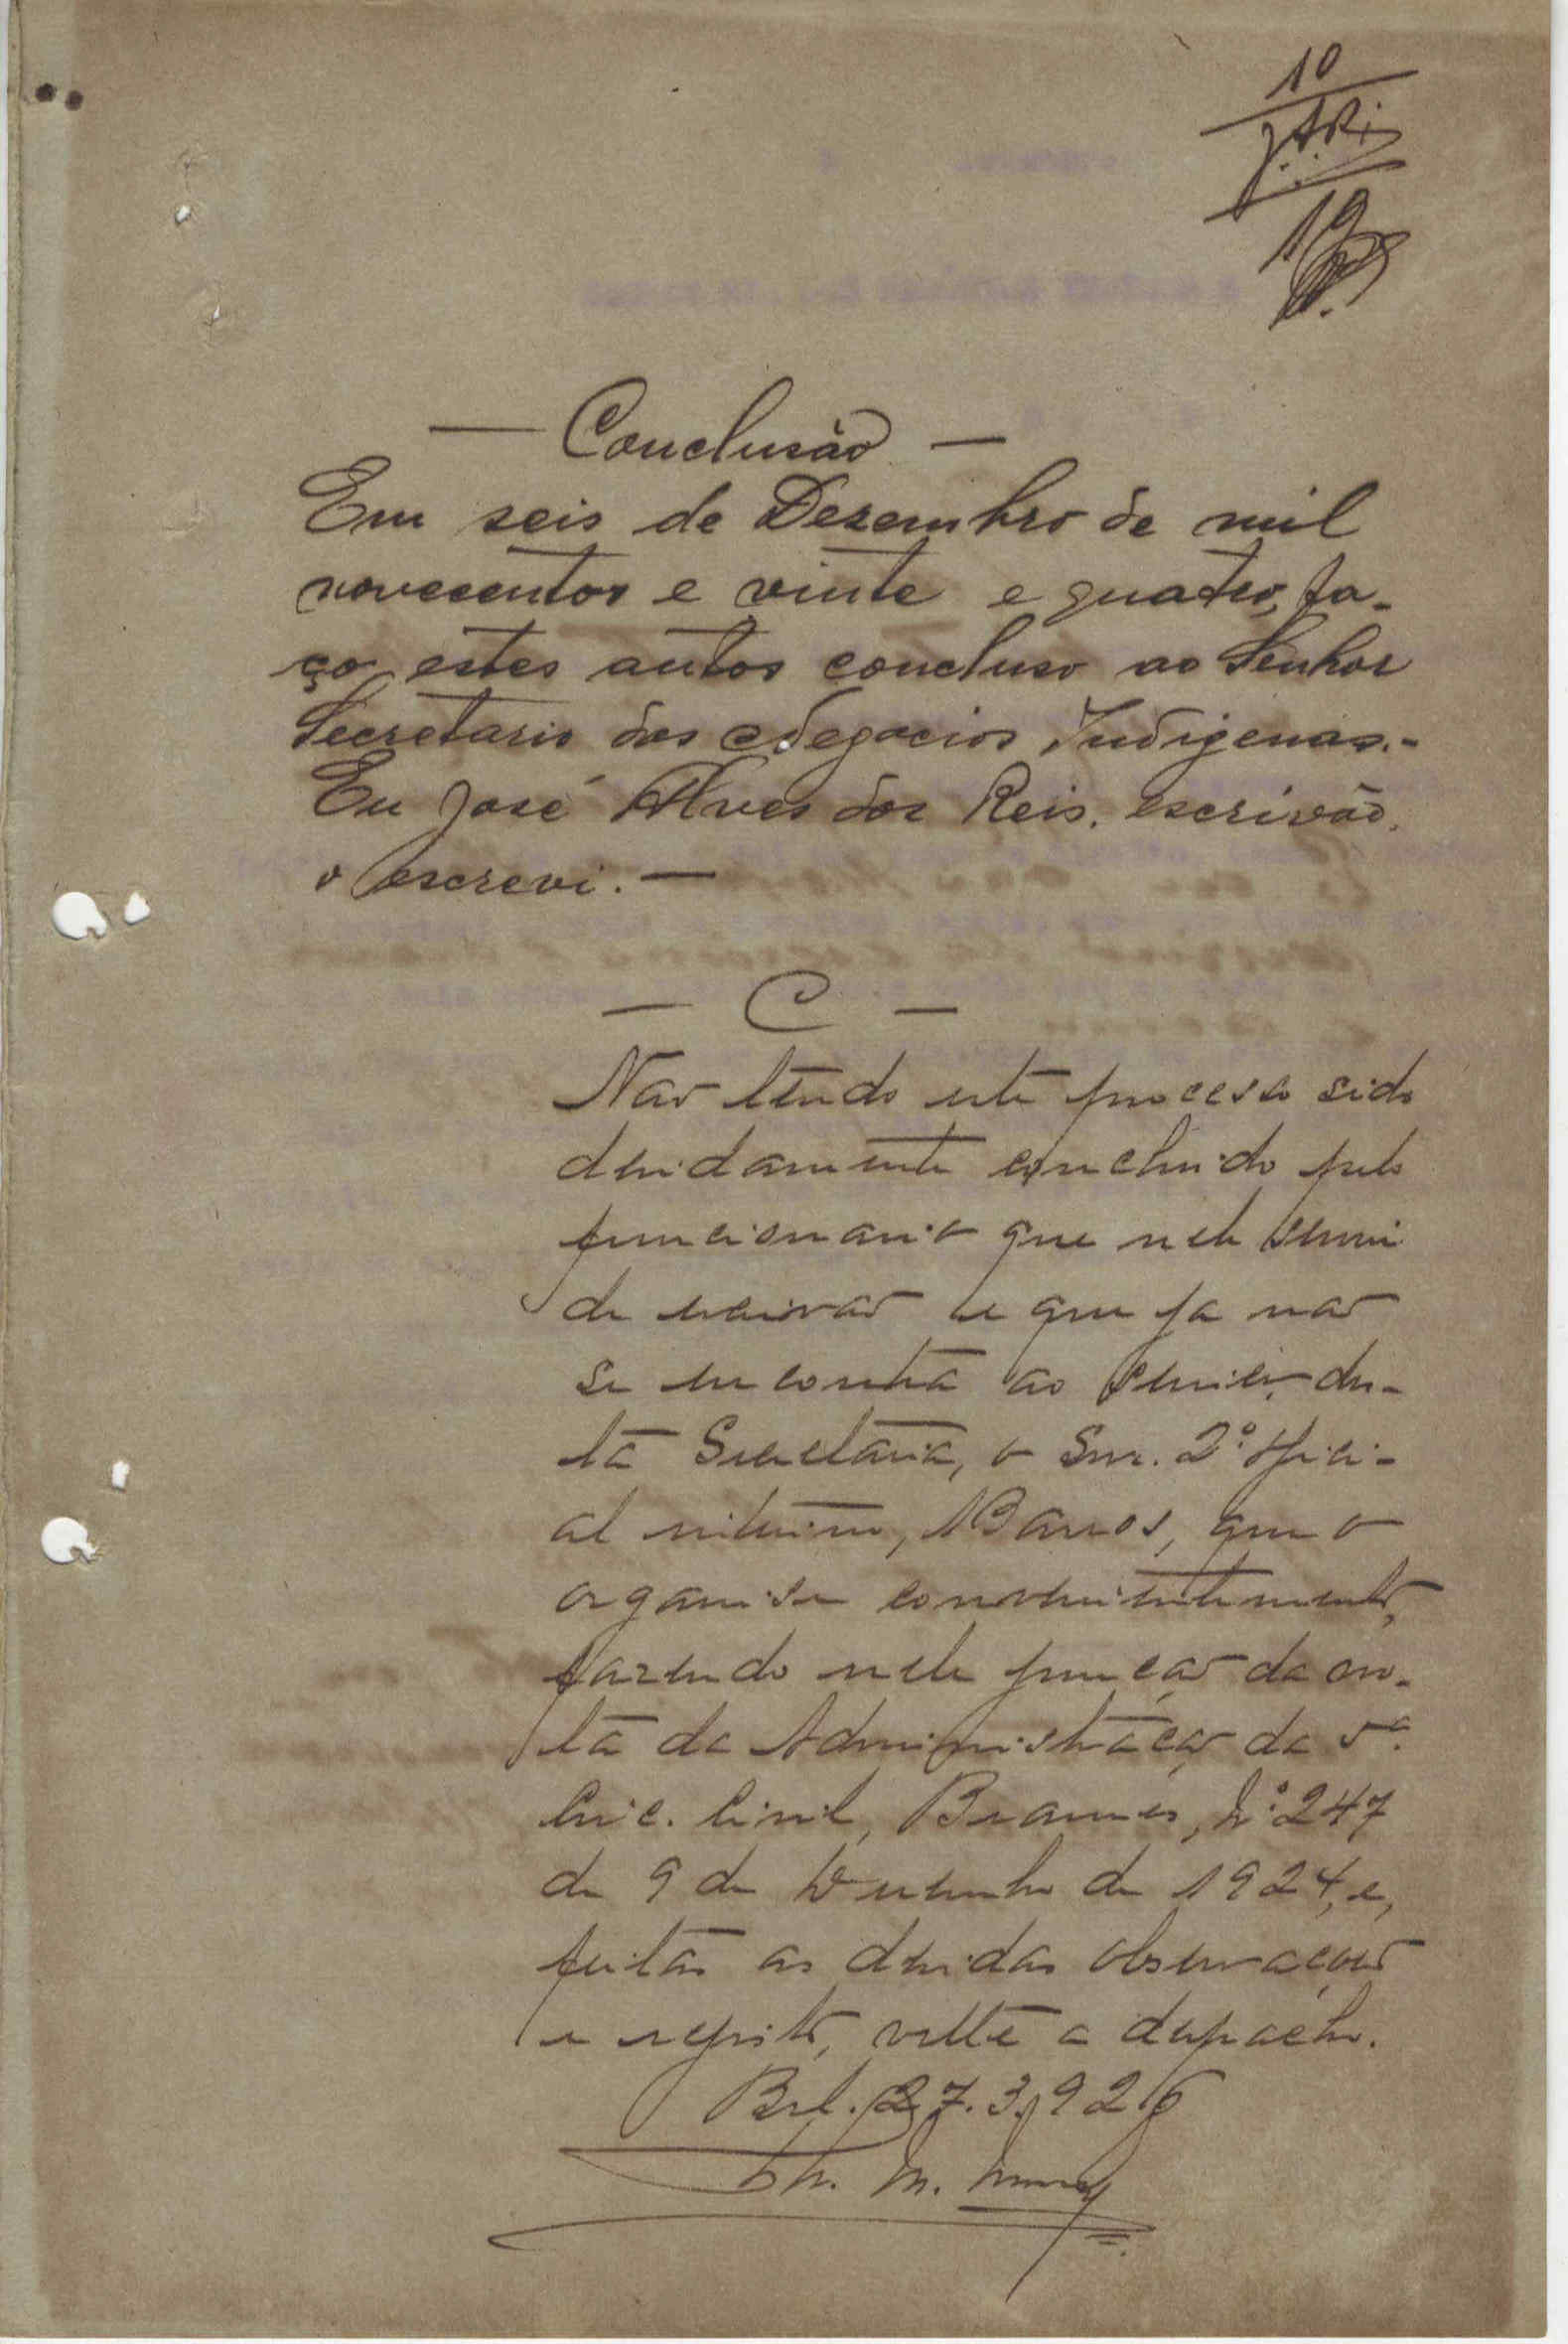 10
J.A.Reis
19
— Conclusão —
Em seis de Dezembro de mil
novecentos e vinte e quatro, fa-
ço estes autos concluso ao Senhor
Secretario dos Negocios Indigenas.-
Eu José Alves dos Reis, escrivão,
o escrevi. —
— C —
Não tendo este processo sido
devidamente concluido pelo
funcionario que nele serviu
de escrivão e que ja não
se encontra ao serviço des-
ta Secretaria, o Snr. 2º Ofici-
al interino, Barros, que o
organise convenientemente,
fazendo nele junção da no-
ta da Administração da 5ª
Circ. Civil, Buramos, Nº 247
de 9 de Dezembro de 1924, e,
feitas as devidas observações
e registo, volte a despacho.
Bol. 27.3.926